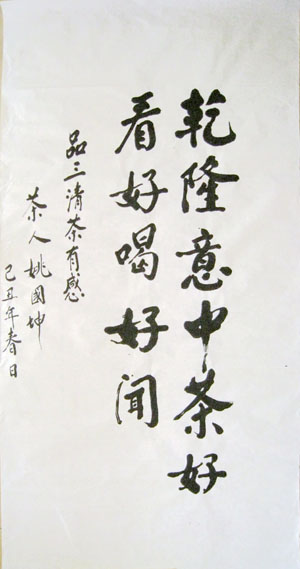 乾隆意中茶好
看好喝好闻
品三清茶有感
茶人姚国坤
己丑年春日